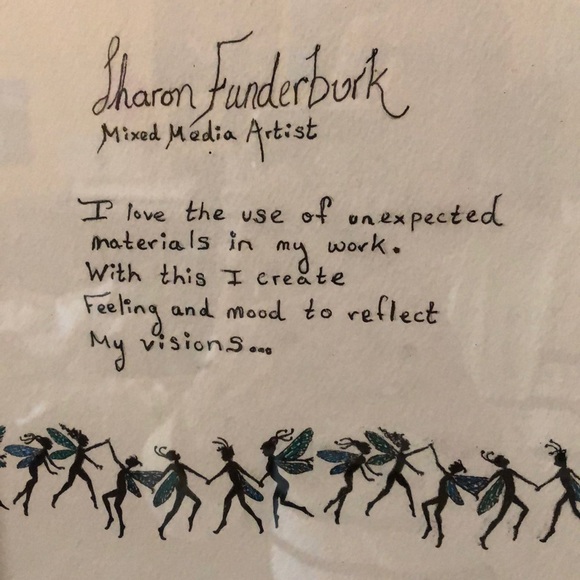 Sharon Funderburk
Mixed Media Artist
I love the use of unexpected
materials in my work.
With this I create
Feeling and mood to reflect
My visions...